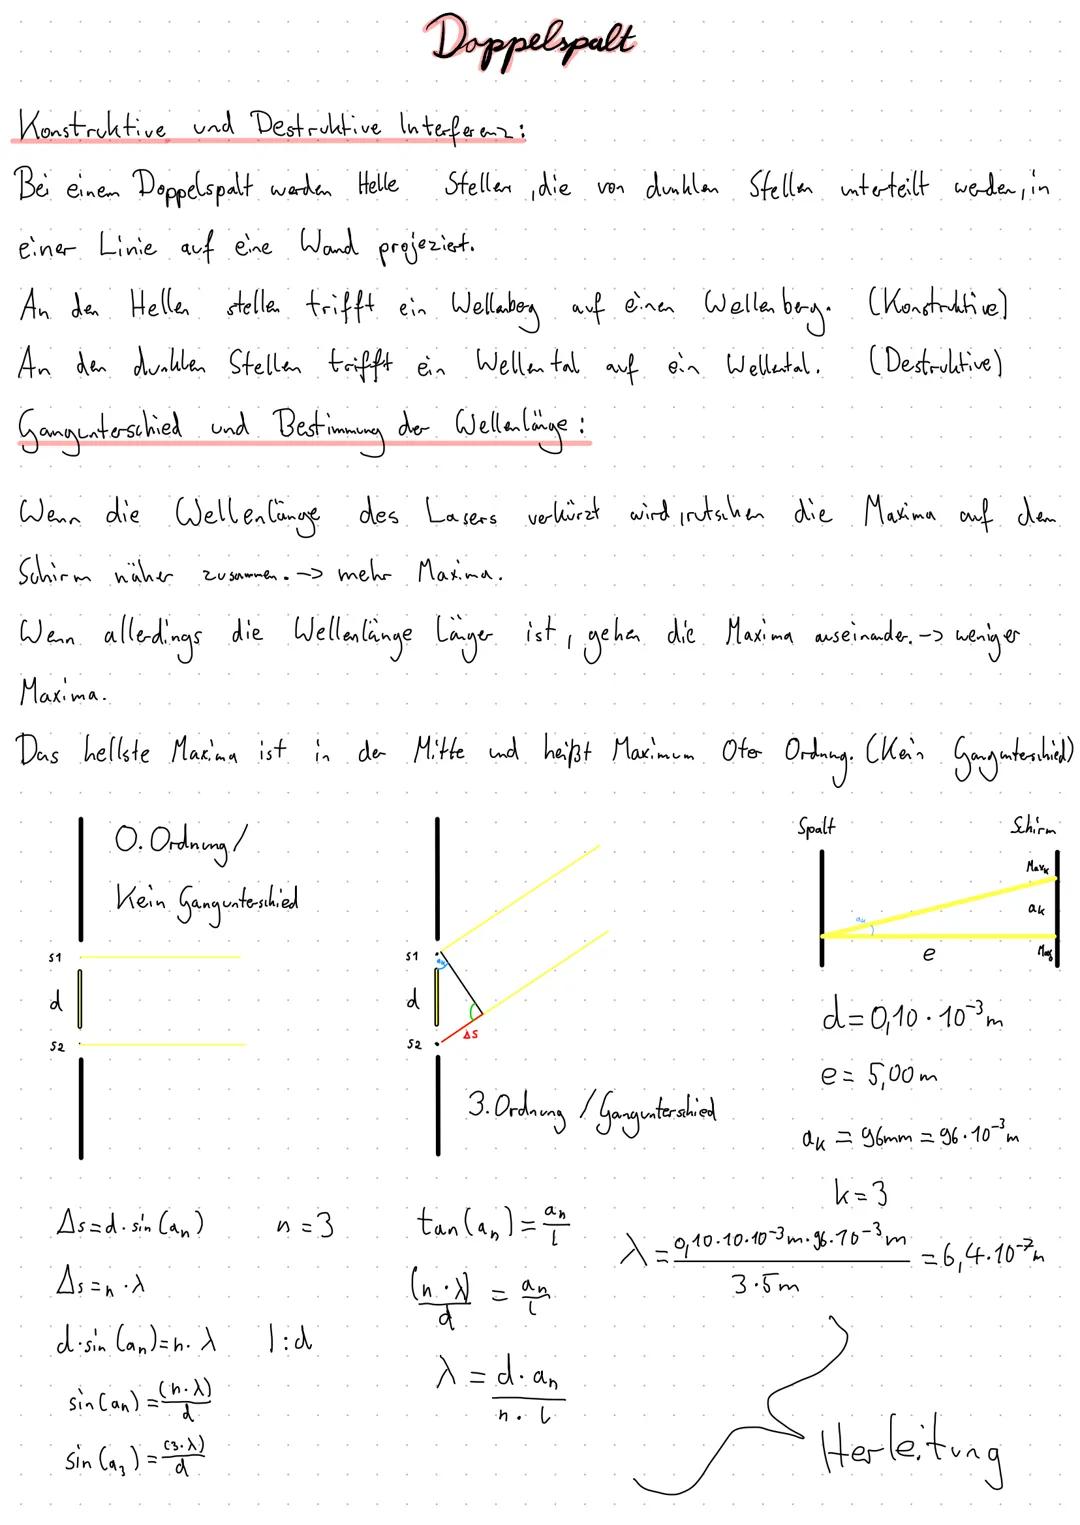 Doppelspalt
Konstruktive und Destruktive Interferenz:
Bei einem Doppelspalt werden Helle Stellen, die von dunklen Stellen unterteilt werden, in
einer Linie auf eine Wand projeziert.
An den Hellen stellen trifft ein Wellenberg auf einen Wellenberg. (Konstruktive)
An den dunklen Stellen trifft ein Wellental auf ein Wellental. (Destruktive)
Gangunterschied und Bestimmung der Wellenlänge:
Wenn die Wellenlänge des Lasers verkürzt wird, rutschen die Maxima auf dem
Schirm näher zusammen. -> mehr Maxima.
Wenn allerdings die Wellenlänge Länger ist, gehen die Maxima auseinander. -> weniger
Maxima.
Das hellste Maxima ist in der Mitte und heißt Maximum 0ter Ordnung. (Kein Gangunterschied)
0. Ordnung /
Kein Gangunterschied
S1
d
S2
S1
αn
d
S2
Δs
3. Ordnung / Gangunterschied
Spalt Schirm
Maxk
αk
ak
e
Max0
d = 0,10 · 10⁻³ m
e = 5,00 m
ak = 96mm = 96 · 10⁻³ m
k = 3
λ = 0,10·10·10⁻³ m · 96·10⁻³ m / 3·5m = 6,4·10⁻⁷ m
Δs = d · sin (an) n = 3
Δs = n · λ
d · sin (an) = n · λ | : d
sin (an) = (n·λ) / d
sin (a3) = (3·λ) / d
tan (an) = an / l
(n·λ) / d = an / l
λ = d · an / n · l
Herleitung